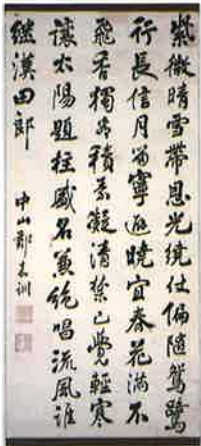 紫微晴雪帶恩光繞仗偏隨鴛鷺
行長信月留寧避曉宜春花滿不
飛香獨看積素凝清禁已覺輕寒
讓太陽題柱盛名兼絶唱流風誰
繼漢田郎
中山鄭嘉訓